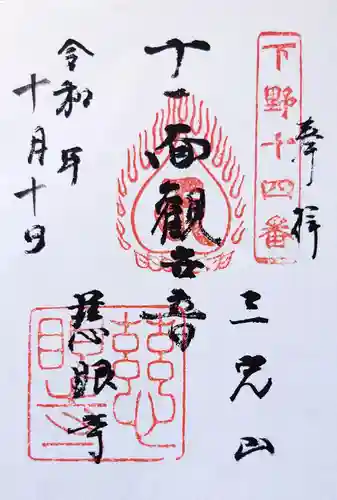 下野十四番
奉拝
三光山
十一面観世音
慈眼寺
令和 年
十月十日